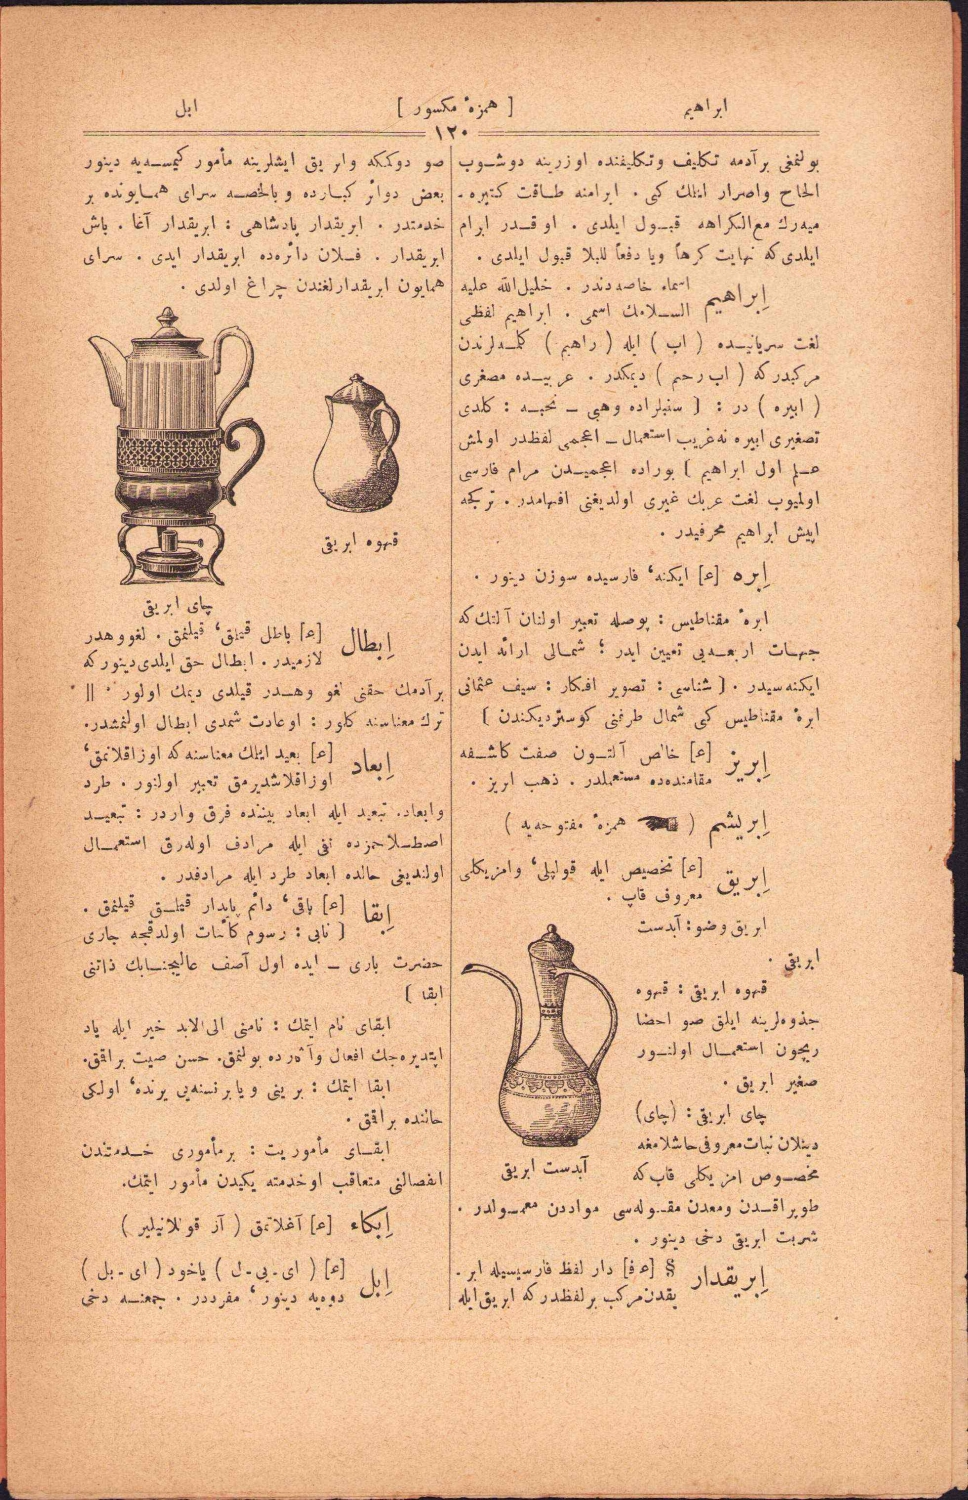 ابراهیم
[ همزهٔ مکسور ]
ابل
١٢٠
بولنمغی برآدمه تکلیف وتکلیفنده اوزرینه دوشوب
الحاح واصرار ایتمك کبی . ابرامنه طاقت کتیره ـ
میەرك مع‌الکراهه قبول ایلدی . او قدر ابرام
ایلدی‌که نهایت کرهاً ویا دفعاً للبلا قبول ایلدی .
اِبراهیم
اسماء خاصه‌دندر . خلیل‌الله علیه
السلامك اسمی . ابراهیم لفظی
لغت سریانیده ( اب ) ایله ( راهیم ) کلمه‌لرندن
مرکبدرکه ( اب رحیم ) دیمکدر . عربیده مصغری
( ابیره ) در : [ سنبلزاده وهبی ــ نخبه : کلدی
تصغیری ابیره نه‌غریب استعمال ــ اعجمی لفظدر اولمش
علم اول ابراهیم ] بوراده اعجمیدن مرام فارسی
اولمیوب لغت عربك غیری اولدیغنی افهامدر . ترکجه
ایپش ابراهیم محرفیدر .
اِبره [ع] ایکنه ، فارسیده سوزن دینور .
ابرهٔ مقناطیس : پوصله تعبیر اولنان آلتك‌که
جهات اربعه‌یی تعیین ایدر ؛ شمالی ارائه ایدن
ایکنه‌سیدر . [ شناسی : تصویر افکار : سیف عثمانی
ابرهٔ مقناطیس کبی شمال طرفنی کوستردیکندن ]
اِبریز
[ع] خالص آلتون صفت کاشفه
مقامنده‌ده مستعملدر . ذهب ابریز .
اِبریشم ( ☚ همزهٔ مفتوحه‌یه )
اِبریق
[ع] تخصیص ایله قولپلی ، وامزیکلی
معروف قاپ .
ابریق وضو : آبدست
ابریقی .
قهوه ابریقی : قهوه
جذوه‌لرینه ایلق صو احضا
ریچون استعمال اولنور
صغیر ابریق .
چای ابریقی : (چای)
دینلان نبات معروفی حاشلامغه
مخصوص امزیکلی قاب‌که
طوپراقدن ومعدن مقوله‌سی موادّدن معمولدر .
شربت ابریقی دخی دینور .
آبدست ابریقی
اِبریقدار
§ [ع ف] دار لفظ فارسیسیله ابر ـ
یقدن مرکب برلفظدرکه ابریق ایله
صو دوکمکه وابریق ایشلرینه مأمور کیمسه‌یه دینور
بعض دوائر کبارده وبالخصه سرای همایونده بر
خدمتدر . ابریقدار پادشاهی : ابریقدار آغا . باش
ابریقدار . فلان دائره‌ده ابریقدار ایدی . سرای
همایون ابریقدارلغندن چراغ اولدی .
قهوه ابریقی
چای ابریقی
اِبطال
[ع] باطل قیلمق ، قیلنمق . لغووهدر
لازمیدر . ابطال حق ایلدی‌دینورکه
برآدمك حقنی لغو وهدر قیلدی دیمك اولور . ||
ترك معناسنه کلور : اوعادت شمدی ابطال اولنمشدر.
اِبعاد
[ع] بعید ایتمك معناسنه‌که اوزاقلانمق ،
اوزاقلاشدیرمق تعبیر اولنور . طرد
وابعاد. تبعید ایله ابعاد بیننده فرق واردر : تبعید
اصطلاحمزده نفی ایله مرادف اوله‌رق استعمال
اولندیغی حالده ابعاد طرد ایله مرادفدر .
اِبقا
[ع] باقی ، دائم پایدار قیلمق قیلنمق .
[ نابی : رسوم کائنات اولدقجه جاری
حضرت باری ــ ایده اول آصف عالیجنابك ذاتنی
ابقا ]
ابقای نام ایتمك : نامنی الی‌الابد خیر ایله یاد
ایتدیره‌جك افعال وآثارده بولنمق. حسن صیت براقمق.
ابقا ایتمك : برینی ویابرنسنه‌یی یرنده ، اولکی
حالنده براقمق .
ابقای مأموریت : برمأموری خدمتندن
انفصالنی متعاقب اوخدمته یکیدن مأمور ایتمك.
اِبکاء [ع] آغلاتمق ( آز قوللانیلیر )
اِبل
[ع] ( ای‌ ـ بی‌ ـ ل ) یاخود ( ای ـ بل )
دوه‌یه دینور ، مفرددر . جمعنه دخی